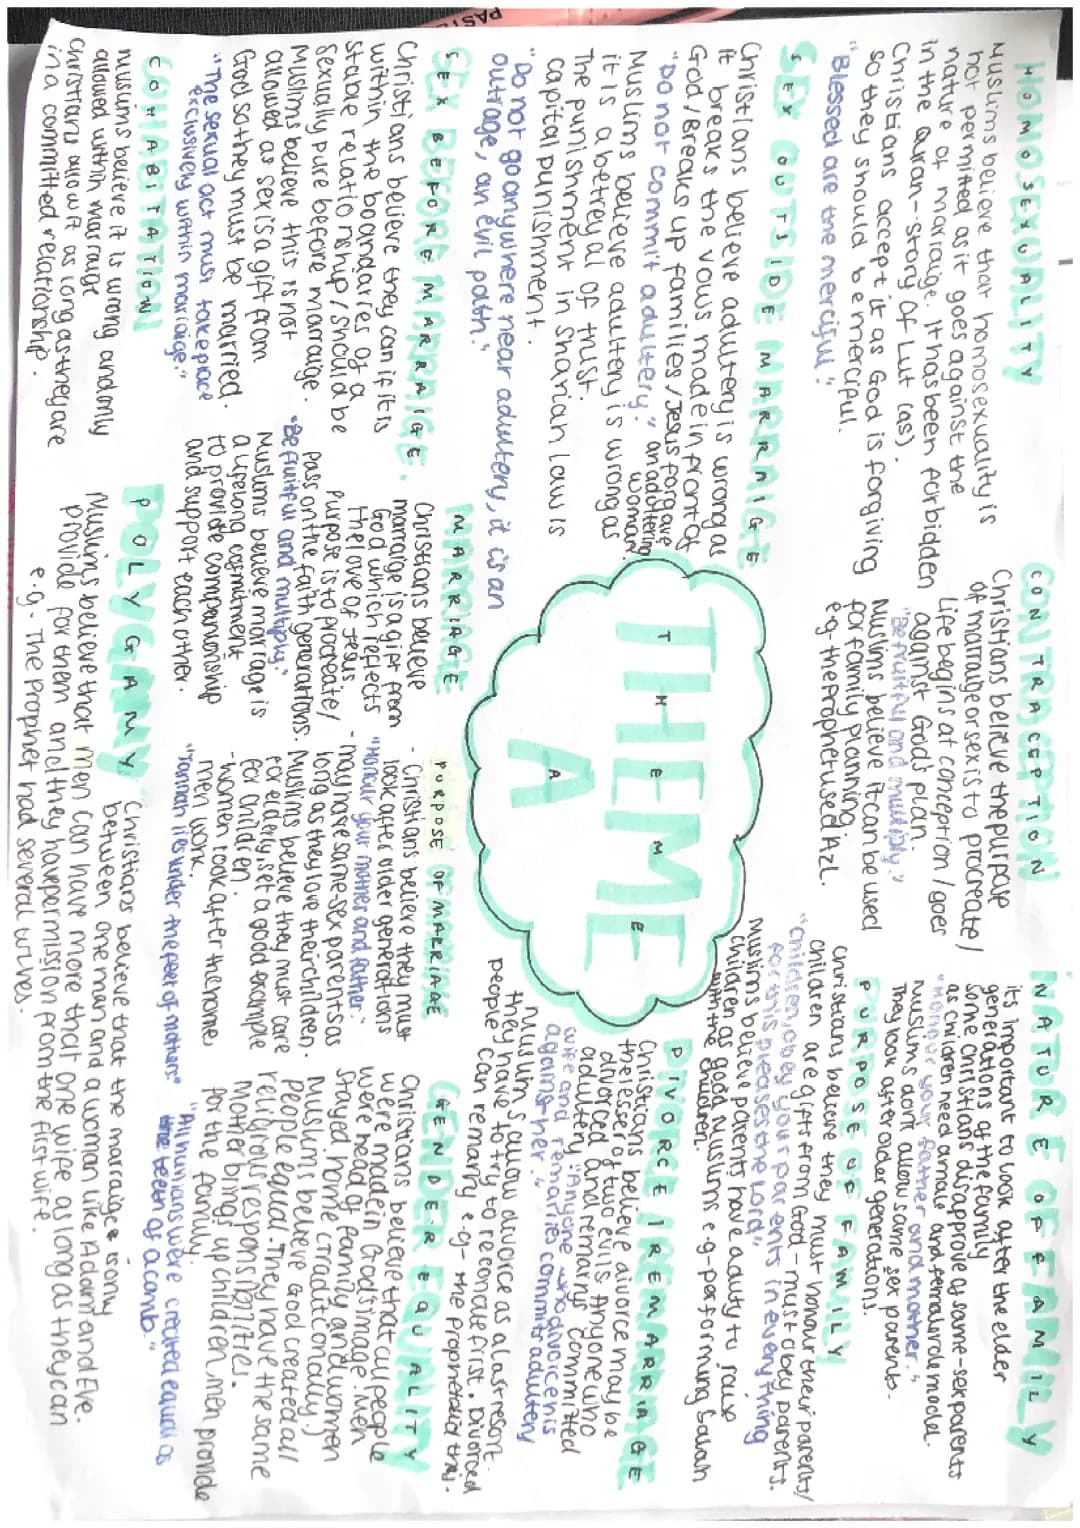 PASTE
HOMOSEXUALITY
Muslims believe that homosexuality is
not permitted as it goes against the
nature of marraige. It has been forbidden
in the Quran - story of Lut (as).
Christians accept it as God is forgiving
so they should be merciful.
"Blessed are the merciful"
SEX OUTSIDE MARRAIGE
Christians believe adultery is wrong as
it breaks the vows made in front of
God / Breaks up families / Jesus forgave
"Do not commit adultery." an adultering
woman
Muslims believe adultery is wrong as
it is a betreyal of trust.
The punishment in Shariah Law is
capital punishment.
"Do not go anywhere near adultery, it is an
outrage, an evil path."
SEX BEFORE MARRAIGE.
Christians believe they can if it is
within the boundaries of a
stable relationship / should be
sexually pure before marraige.
Muslims believe this is not
allowed as sex is a gift from
God so they must be married.
"The sexual act must take place
exclusively within marraige."
COHABITATION
muslims believe it is wrong and only
allowed within marraige
Christians allow it as long as they are
in a committed relationship.
CONTRACEPTION
Christians believe the purpose
of marraige or sex is to procreate /
Life begins at conception / goes
against God's plan.
"Be fruitful and multiply."
Muslims believe it can be used
for family planning.
e.g. the Prophet used Azl.
THEME
THEME
A
A
MARRIAGE
Christians believe
marraige is a gift from
God which reflects
the love of Jesus
Purpose is to procreate /
pass on the faith generations.
"Be fruitful and multiply."
Muslims believe marraige is
a lifelong commitment
to provide companionship
and support each other.
PURPOSE OF MARRIAGE
- Christians believe they must
look after older generations
"Honour your mother and father."
- may have same-sex parents as
long as they love their children.
Muslims believe they must care
for elderly, set a good example
for children.
- women look after the home
men work.
"Jannah lies under the feet of mothers"
POLYGAMY
Christians believe that the marraige is only
between one man and a woman like Adam and Eve.
Muslims believe that men can have more that one wife as long as they can
provide for them and they have permission from the first wife.
e.g. The Prophet had several wives.
NATURE OF FAMILY
it's important to look after the elder
generations of the family
some Christians disapprove of same-sex parents
as children need a male and female role model.
"Honour your father and mother."
Muslims don't allow same sex parents.
They look after older generations.
PURPOSE OF FAMILY
Christians believe they must honour their parents/
children are gifts from God - must obey parents.
"Children, obey your parents in everything
for this pleases the Lord"
Muslims believe parents have a duty to raise
children as good Muslims e.g- performing Salah
with the children.
DIVORCE / REMARRIAGE
Christians believe divorce may be
the lesser of two evils. Anyone who
divorced and remarrys commited
adultery. "Anyone who divorces his
wife and remarries commits adultery
against her."
Muslims allow divorce as a last resort.
they have to try to reconcile first. Divorced
people can remarry e.g- the Prophet did this.
GENDER EQUALITY
Christians believe that all people
were made in God's image. Men
were head of family and women
stayed home (traditionally)
Muslims believe God created all
people equal. They have the same
religious responsibilites.
Mother brings up children, men provide
for the family.
"All humans were created equal as
the teeth of a comb."